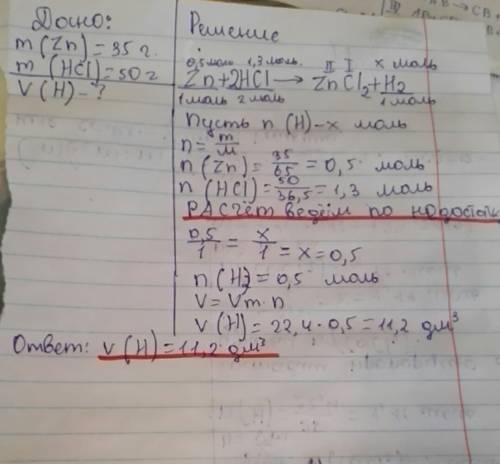 Дано:
m (Zn) = 35 г.
m (HCl) = 50 г
V (H) - ?
Решение
0,5 моль 1,3 моль. II I x моль
Zn + 2HCl → ZnCl₂ + H₂
1 моль 2 моль 1 моль
Пусть n (H) - x моль
n = m/M
n (Zn) = 35/65 = 0,5 моль
n (HCl) = 50/36,5 = 1,3 моль
РАСЧЁТ ведём по
0,5/1 = x/1 = x = 0,5
n (H₂) = 0,5 моль
V = Vm · n
V (H) = 22,4 · 0,5 = 11,2 дм³
Ответ: V (H) = 11,2 дм³